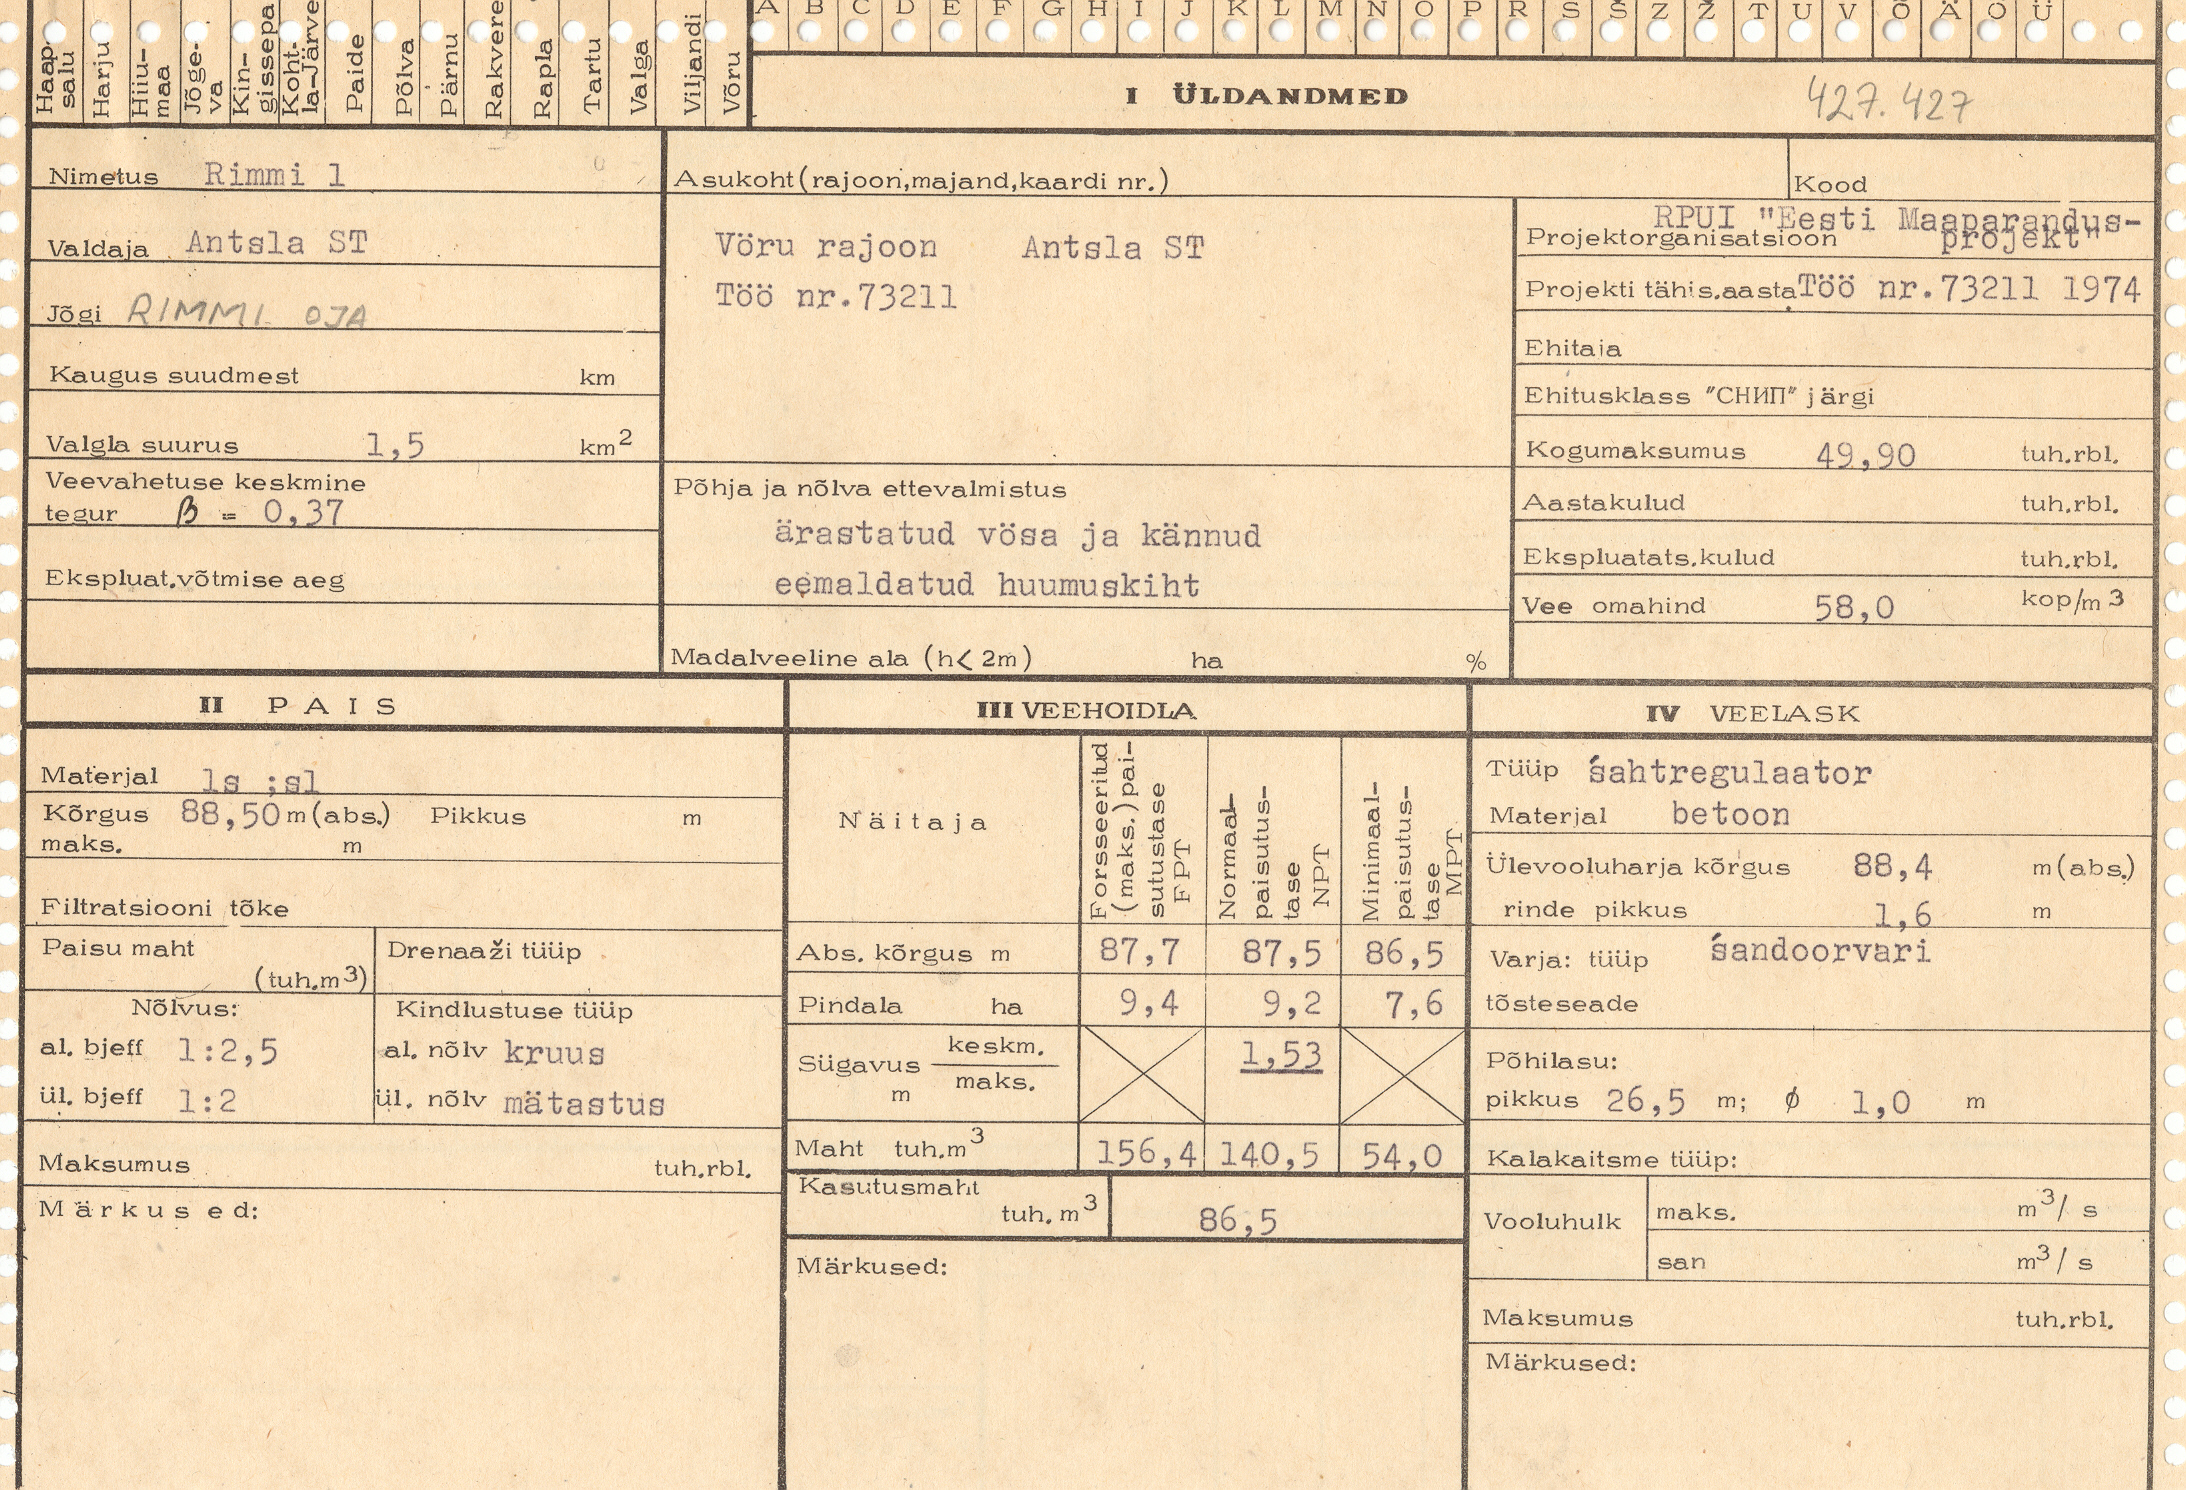 Haap-
salu
Harju
Hiiu-
maa
Jõge-
va
Kin-
gissepa
Koht-
la-Järve
Paide
Põlva
Pärnu
Rakvere
Rapla
Tartu
Valga
Viljandi
Võru
A B C D E F G H I J K L M N O P R S Š Z Ž T U V Õ Ä Ö Ü
I ÜLDANDMED
427.427
Nimetus Rimmi 1
Valdaja Antsla ST
Jõgi RIMMI OJA
Kaugus suudmest km
Valgla suurus 1,5 km²
Veevahetuse keskmine
tegur β = 0,37
Ekspluat.võtmise aeg
Asukoht(rajoon,majand,kaardi nr.)
Vöru rajoon Antsla ST
Töö nr.73211
Põhja ja nõlva ettevalmistus
ärastatud vösa ja kännud
eemaldatud huumuskiht
Madalveeline ala (h< 2m) ha %
Kood
RPUI "Eesti Maaparandus-
Projektorganisatsioon projekt"
Projekti tähis.aasta Töö nr.73211 1974
Ehitaja
Ehitusklass "СНИП" järgi
Kogumaksumus 49,90 tuh.rbl.
Aastakulud tuh.rbl.
Ekspluatats.kulud tuh.rbl.
Vee omahind 58,0 kop/m³
II PAIS
Materjal ls ;sl
Kõrgus 88,50 m(abs.) Pikkus m
maks. m
Filtratsiooni tõke
Paisu maht
(tuh.m³)
Drenaaži tüüp
Nõlvus:
al. bjeff 1:2,5
ül. bjeff 1:2
Kindlustuse tüüp
al. nõlv kruus
ül. nõlv mätastus
Maksumus tuh.rbl.
Märkused:
III VEEHOIDLA
Näitaja
Forsseeritud
(maks.) pai-
sutustase
FPT
Normaal-
paisutus-
tase
NPT
Minimaal-
paisutus-
tase
MPT
Abs. kõrgus m 87,7 87,5 86,5
Pindala ha 9,4 9,2 7,6
Sügavus keskm. 1,53
m maks.
Maht tuh.m³ 156,4 140,5 54,0
Kasutusmaht
tuh. m³ 86,5
Märkused:
IV VEELASK
Tüüp śahtregulaator
Materjal betoon
Ülevooluharja kõrgus 88,4 m(abs.)
rinde pikkus 1,6 m
Varja: tüüp śandoorvari
tõsteseade
Põhilasu:
pikkus 26,5 m; ϕ 1,0 m
Kalakaitsme tüüp:
Vooluhulk
maks. m³/ s
san m³/ s
Maksumus tuh.rbl.
Märkused: